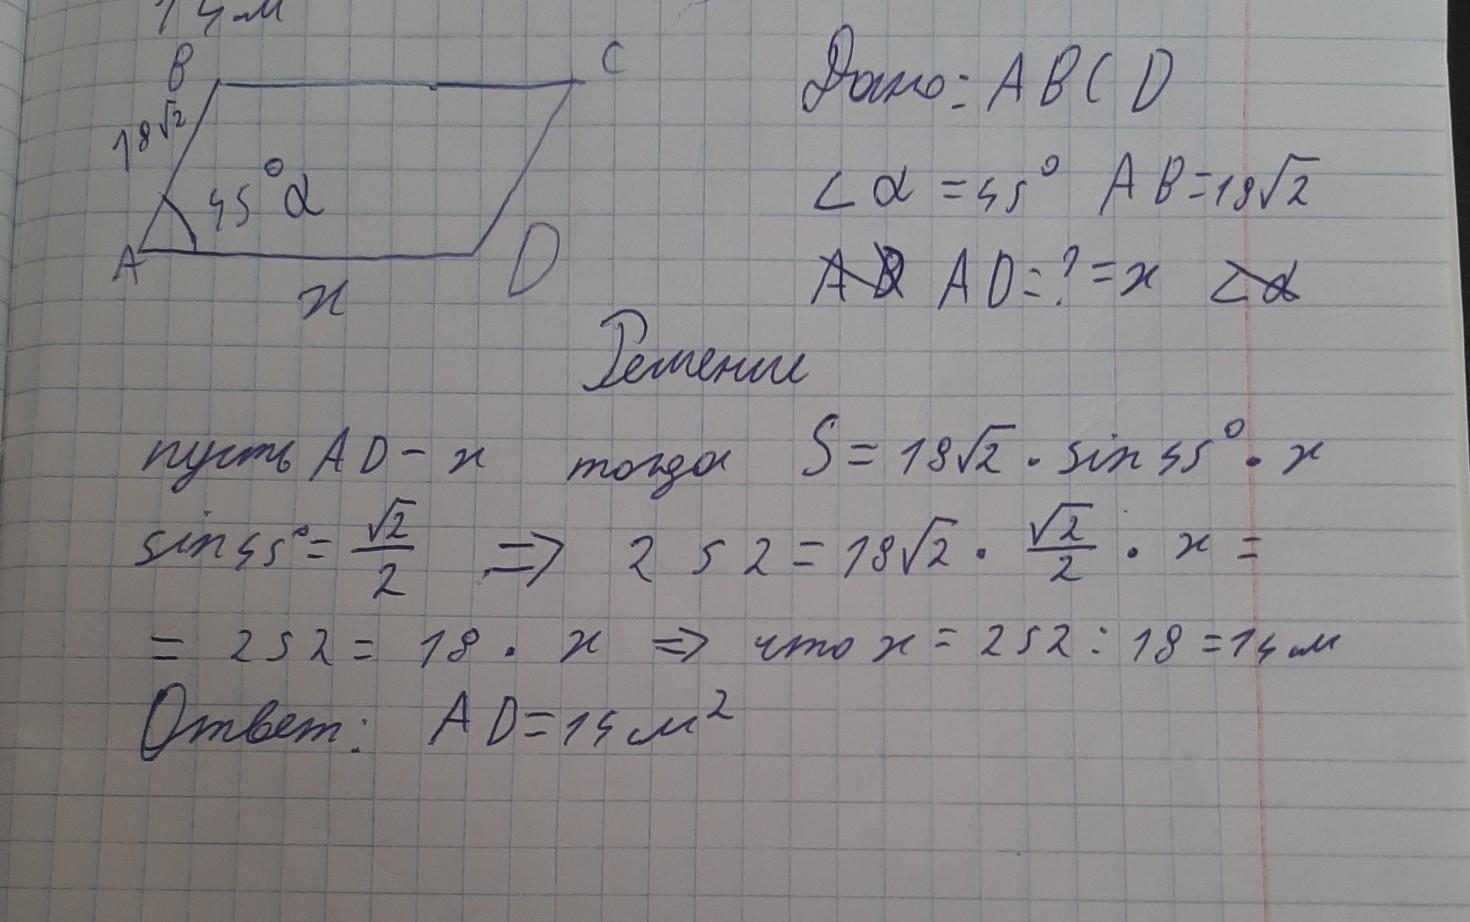 14 м
B C
18√2
45° α
A D
x
Дано: ABCD
∠α = 45° AB = 18√2
AD = ? = x ∠α
Решение
пусть AD - x тогда S = 18√2 · sin 45° · x
sin 45° = √2/2 => 252 = 18√2 · √2/2 · x =
= 252 = 18 · x => что x = 252 : 18 = 14 м
Ответ: AD = 14 м²